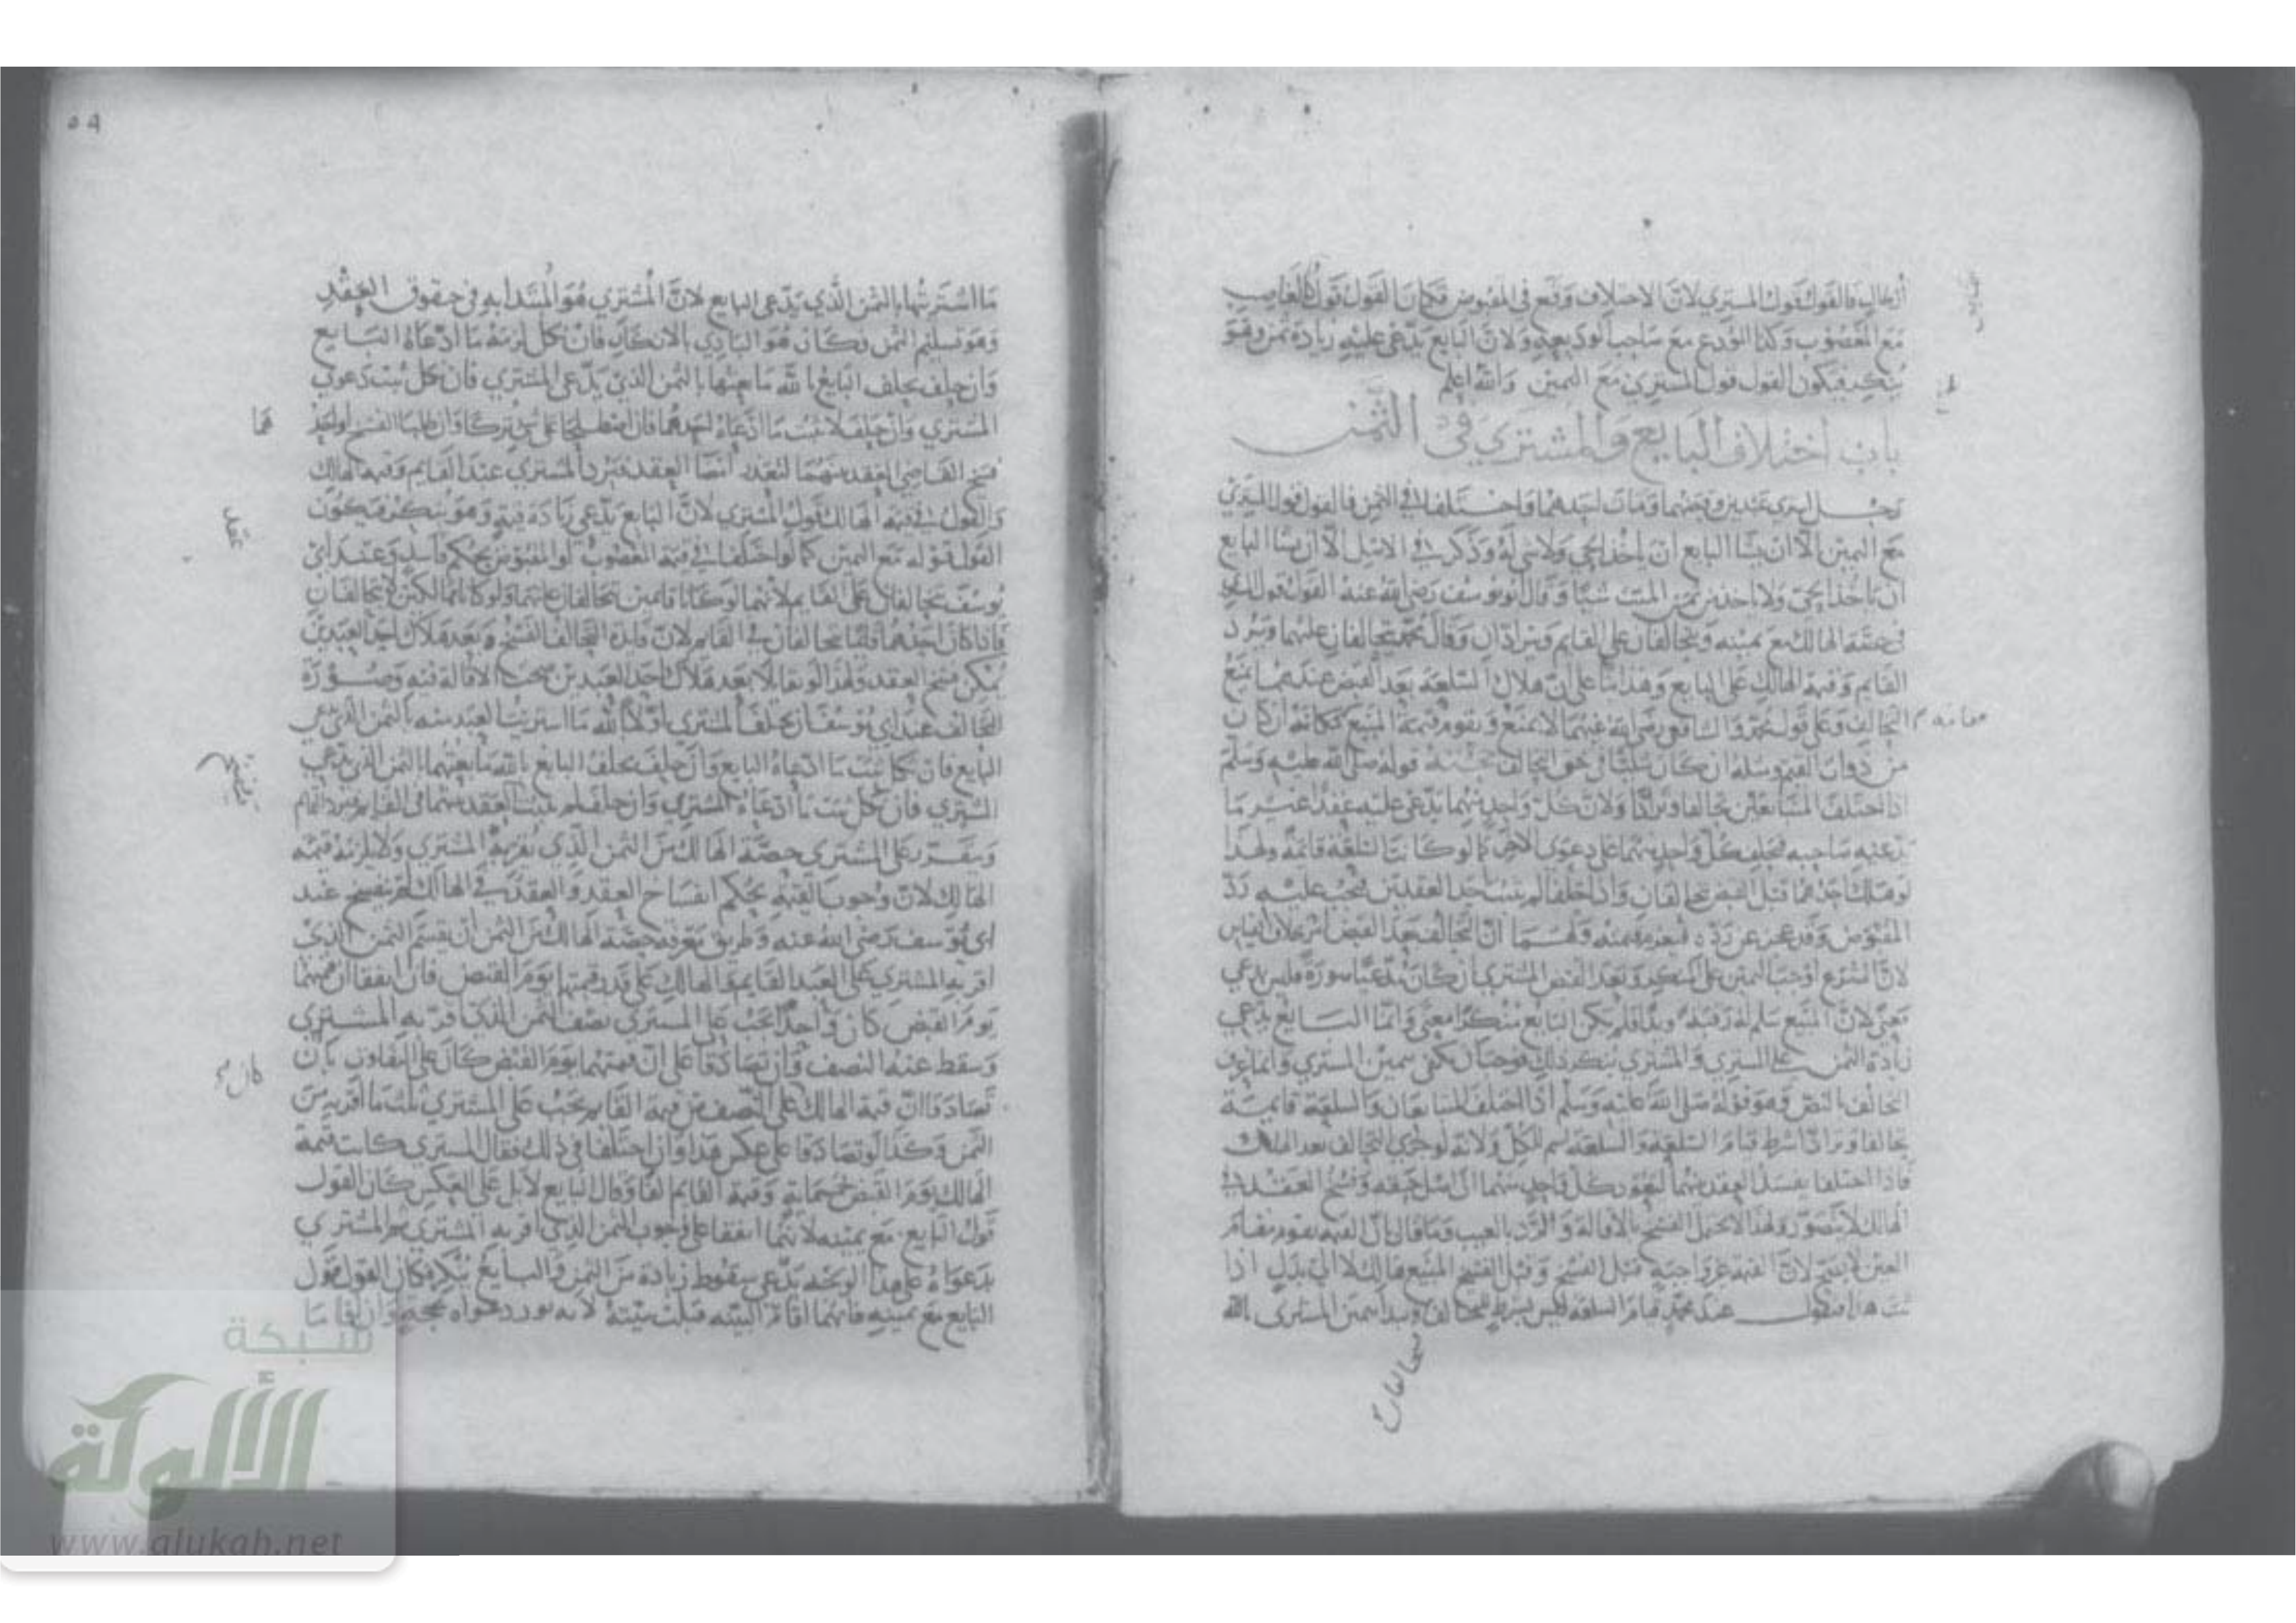 فالقول قول المشتري لان الاختلاف وقع في المقبوض فكان القول قول كالغاصب
مع المغصوب وكذا المودع مع صاحب الوديعة ولان البايع يدعي عليه زيادة ثمن وهو
ينكر فيكون القول قول المشتري مع اليمين والله اعلم
باب اختلاف البايع والمشتري في الثمن
رجل اشتري عبدين وقبضهما ومات احدهما واختلفا في الثمن فالقول قول المشتري
مع اليمين الا ان يشا البايع ان ياخذ الحي ولا شي له وذكر في الاصل الا ان يشا البايع
ان ياخذ الحي ولا ياخذ من ثمن الميت شيا وقال ابو يوسف رضي الله عنه القول قول المشتري
في حصة الهالك مع يمينه ويتحالفان على القايم ويترادان وقال محمد يتحالفان عليهما ويرد
القايم وقيمة الهالك على البايع وهذا بنا على ان هلاك السلعة بعد القبض عندهما يمنع
التحالف وعلى قول محمد والشافعي رضي الله عنهما لا يمنع ويقوم قيمة المبيع
مقامه
من ذوات القيم ومثله ان كان مثليا في حق التحالف قوله صلى الله عليه وسلم
اذا اختلف المتبايعان تحالفا وترادا ولان كل واحد منهما يدعي عليه عقدا غير ما
يدعيه صاحبه فيحلف كل واحد منهما على دعوى الاخر كما لو كانت السلعة قائمة ولهذا
لو هلك احدهما قبل القبض تحالفان واذا حلفا لم يثبت احد العقدين فيجب عليه رد
المقبوض وقد عجز عن رده فيغرم قيمته ولهما ان التحالف بعد القبض امر بخلاف القياس
لان الشرع اوجب اليمين على المنكر وبعد القبض المشتري ان كان مدعيا صورة فليس بمدعي
معنى لان المبيع سلم له رقبة ويدا فلم يكن البايع منكرا معنى وانما البايع يدعي
زيادة الثمن على المشتري والمشتري ينكر ذلك فوجب ان يكتفي بيمين المشتري وانما عرف
التحالف بالنص وهو قوله صلى الله عليه وسلم اذا اختلف المتبايعان والسلعة قايمة
تحالفا وترادا شرط قيام السلعة والسلعة اسم للكل ولانه لو جرى التحالف بعد الهلاك
فاذا اختلفا يفسد العقد بينهما ليعود كل واحد منهما الى اصل حقه وفسخ العقد في
الهالك لا يتصور ولهذا لا يحتمل الفسخ بالاقالة والرد بالعيب وما قال بان القيمة تقوم مقام
العين لا يصح لان القيمة غير واجبة قبل الفسخ وقبل الفسخ المبيع هالك لا الى بدل اذا
ثبت هذا نقول عند محمد قيام السلعة ليس بشرط للتحالف ويبدا بيمين المشتري بالله
يتحالفان
٥٩
ما اشتريتها بالثمن الذي يدعي البايع لان المشتري هو المبتدا به في حقوق العقد
وهو تسليم الثمن وكان هو البادي بالانكار فان نكل لزمه ما ادعاه البايع
وان حلف يحلف البايع بالله ما بعتها بالثمن الذي يدعي المشتري فان نكل ثبت دعوي
المشتري وان حلف لا يثبت ما ادعاه احدهما فان اصطلحا على شي تركا وان طلبا الفسخ او احد
هما
فسخ القاضي العقد بينهما لتعذر امضا العقد فيرد المشتري عند القايم وقيمة الهالك
والقول في قيمة الهالك قول المشتري لان البايع يدعي زيادة قيمة وهو ينكر فيكون
القول قوله مع اليمين كما لو اختلفا في قيمة المغصوب او المقبوض بحكم فاسد وعند ابي
عقد
يوسف يتحالفان على القايم لانهما لو كانا قايمين يتحالفان عليهما ولو كانا هالكين لا يتحالفان
فاذا كان احدهما قلنا يتحالفان في القايم لان فايدة التحالف الفسخ وبعد هلاك احد العبدين
يمكن فسخ العقد ولهذا لو تقايلا بعد هلاك احد العبدين صحت الاقالة فيه وصورة
التحالف عند ابي يوسف ان يحلف المشتري اولا بالله ما اشتريت العبد منه بالثمن الذي يدعي
البايع فان نكل ثبت ما ادعاه البايع وان حلف يحلف البايع بالله ما بعتهما بالثمن الذي يدعي
المشتري فان نكل ثبت ما ادعاه المشتري وان حلف لم يثبت العقد بينهما في القايم فيرد القايم
ويتقرر على المشتري حصة الهالك من الثمن الذي يقر به المشتري ولا يلزمه قيمة
الهالك لان وجوب القيمة بحكم انفساخ العقد والعقد في الهالك لم ينفسخ عند
ابي يوسف رضي الله عنه وطريق معرفة حصة الهالك من الثمن ان يقسم الثمن الذي
اقر به المشتري على العبد القايم والهالك على قدر قيمتهما يوم القبض فان اتفقا ان قيمتهما
يوم القبض كان واحدا يجب على المشتري نصف الثمن الذي اقر به المشتري
وسقط عنه النصف وان تصادقا على ان قيمتهما يوم القبض كان على التفاوت بان
تصادقا ان قيمة الهالك على النصف من قيمة القايم يجب على المشتري ثلث ما اقر به من
الثمن وكذا لو تصادقا على عكس هذا وان اختلفا في ذلك فقال المشتري كانت قيمة
الهالك يوم القبض خمسماية وقيمة القايم الفا وقال البايع لا بل على العكس كان القول
قول البايع مع يمينه لانهما اتفقا على وجوب الثمن الذي اقر به المشتري ثم المشتري
بدعواه على هذا الوجه يدعي سقوط زيادة من الثمن والبايع ينكر فكان القول قول
البايع مع يمينه فايهما اقام البينة قبلت بينته لانه نور دعواه بحجة وان اقاما
شبكة
الألوكة
www.alukah.net